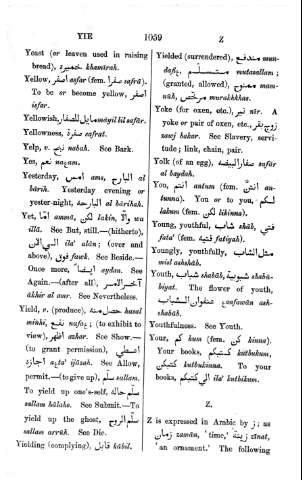 YIE 1059 Z
Yeast (or leaven used in raising
bread), خميرة khamīrah.
Yellow, اصفر asfar (fem. صفرا safrā).
To be or become yellow, اصفر
isfar.
Yellowish, مايل للصفار māyil lil safār.
Yellowness, صفرة safrat.
Yelp, v. نبح nabah. See Bark.
Yes, نعم naƹam.
Yesterday, امس ams, البارح al
bārih. Yesterday evening or
yester-night, البارحه al bārihah.
Yet, امّا ammā, لكن lakin, والا wa
illā. See But, still.—(hitherto),
الي الان ila' alān; (over and
above), فوق fauk. See Beside.—
Once more, ايضاً aydan. See
Again.—(after all) آخر الامر
ākhir al amr. See Nevertheless.
Yield, v. (produce), حصل منه hasal
minhi, نفع nafaƹ; (to exhibit to
view), اظهر azhar. See Show.—
(to grant permission), اعطي
اجازة aƹta' ijāzah. See Allow,
permit.—(to give up), سلم sallam.
To yield up one's-self, سلم حاله
sallam hālaho. See Submit.—To
yield up the ghost, سلم الروح
sallam arrūh. See Die.
Yielding (complying), قابل kābil.
Yielded (surrendered), مندفع mun-
dafiƹ, متسلم mutasallam;
(granted, allowed), ممنوح mam-
nūh, مرخص murakhkhas.
Yoke (for oxen, etc.), نير nīr. A
yoke or pair of oxen, etc., زوج بقر
zauj bakar. See Slavery, servi-
tude; link, chain, pair.
Yolk (of an egg), صفار البيضه safār
al baydah.
You, انتم antum (fem. انتن an-
tunna). You or to you, لكم
lakum (fem. لكن likinna).
Young, youthful, شاب shāb, فتي
fata' (fem. فتية fatiyah).
Youngly, youthfully, مثل الشباب
misl ashshāb.
Youth, شباب shabāb, شبوبية shabū-
biyat. The flower of youth,
عنفوان الشباب ƹanfawān ash-
shabāb.
Youthfulness. See Youth.
Your, كم kum (fem. كن kinna).
Your books, كتبكم kutbukum,
كتبكن kutbukinna. To your
books, الي كتبكم ila' kutbikum.
Z.
Z is expressed in Arabic by ز; as
زمان zamān, 'time,' زينة zīnat,
'an ornament.' The following